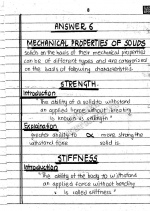 8
ANSWER 6
MECHANICAL PROPERTIES OF SOLIDS
Solids on the basis of their mechanical properties
can be of different types and are categorized
on the basis of following characteristics
STRENGTH
Introduction
"The ability of a solid to withstand
an applied force without breaking
is known as strength"
Explanation
greater ability to ∝ more strong the
withstand force solid is.
STIFFNESS
Introduction
"The ability of the body to withstand
an applied force without bending
is called stiffness"